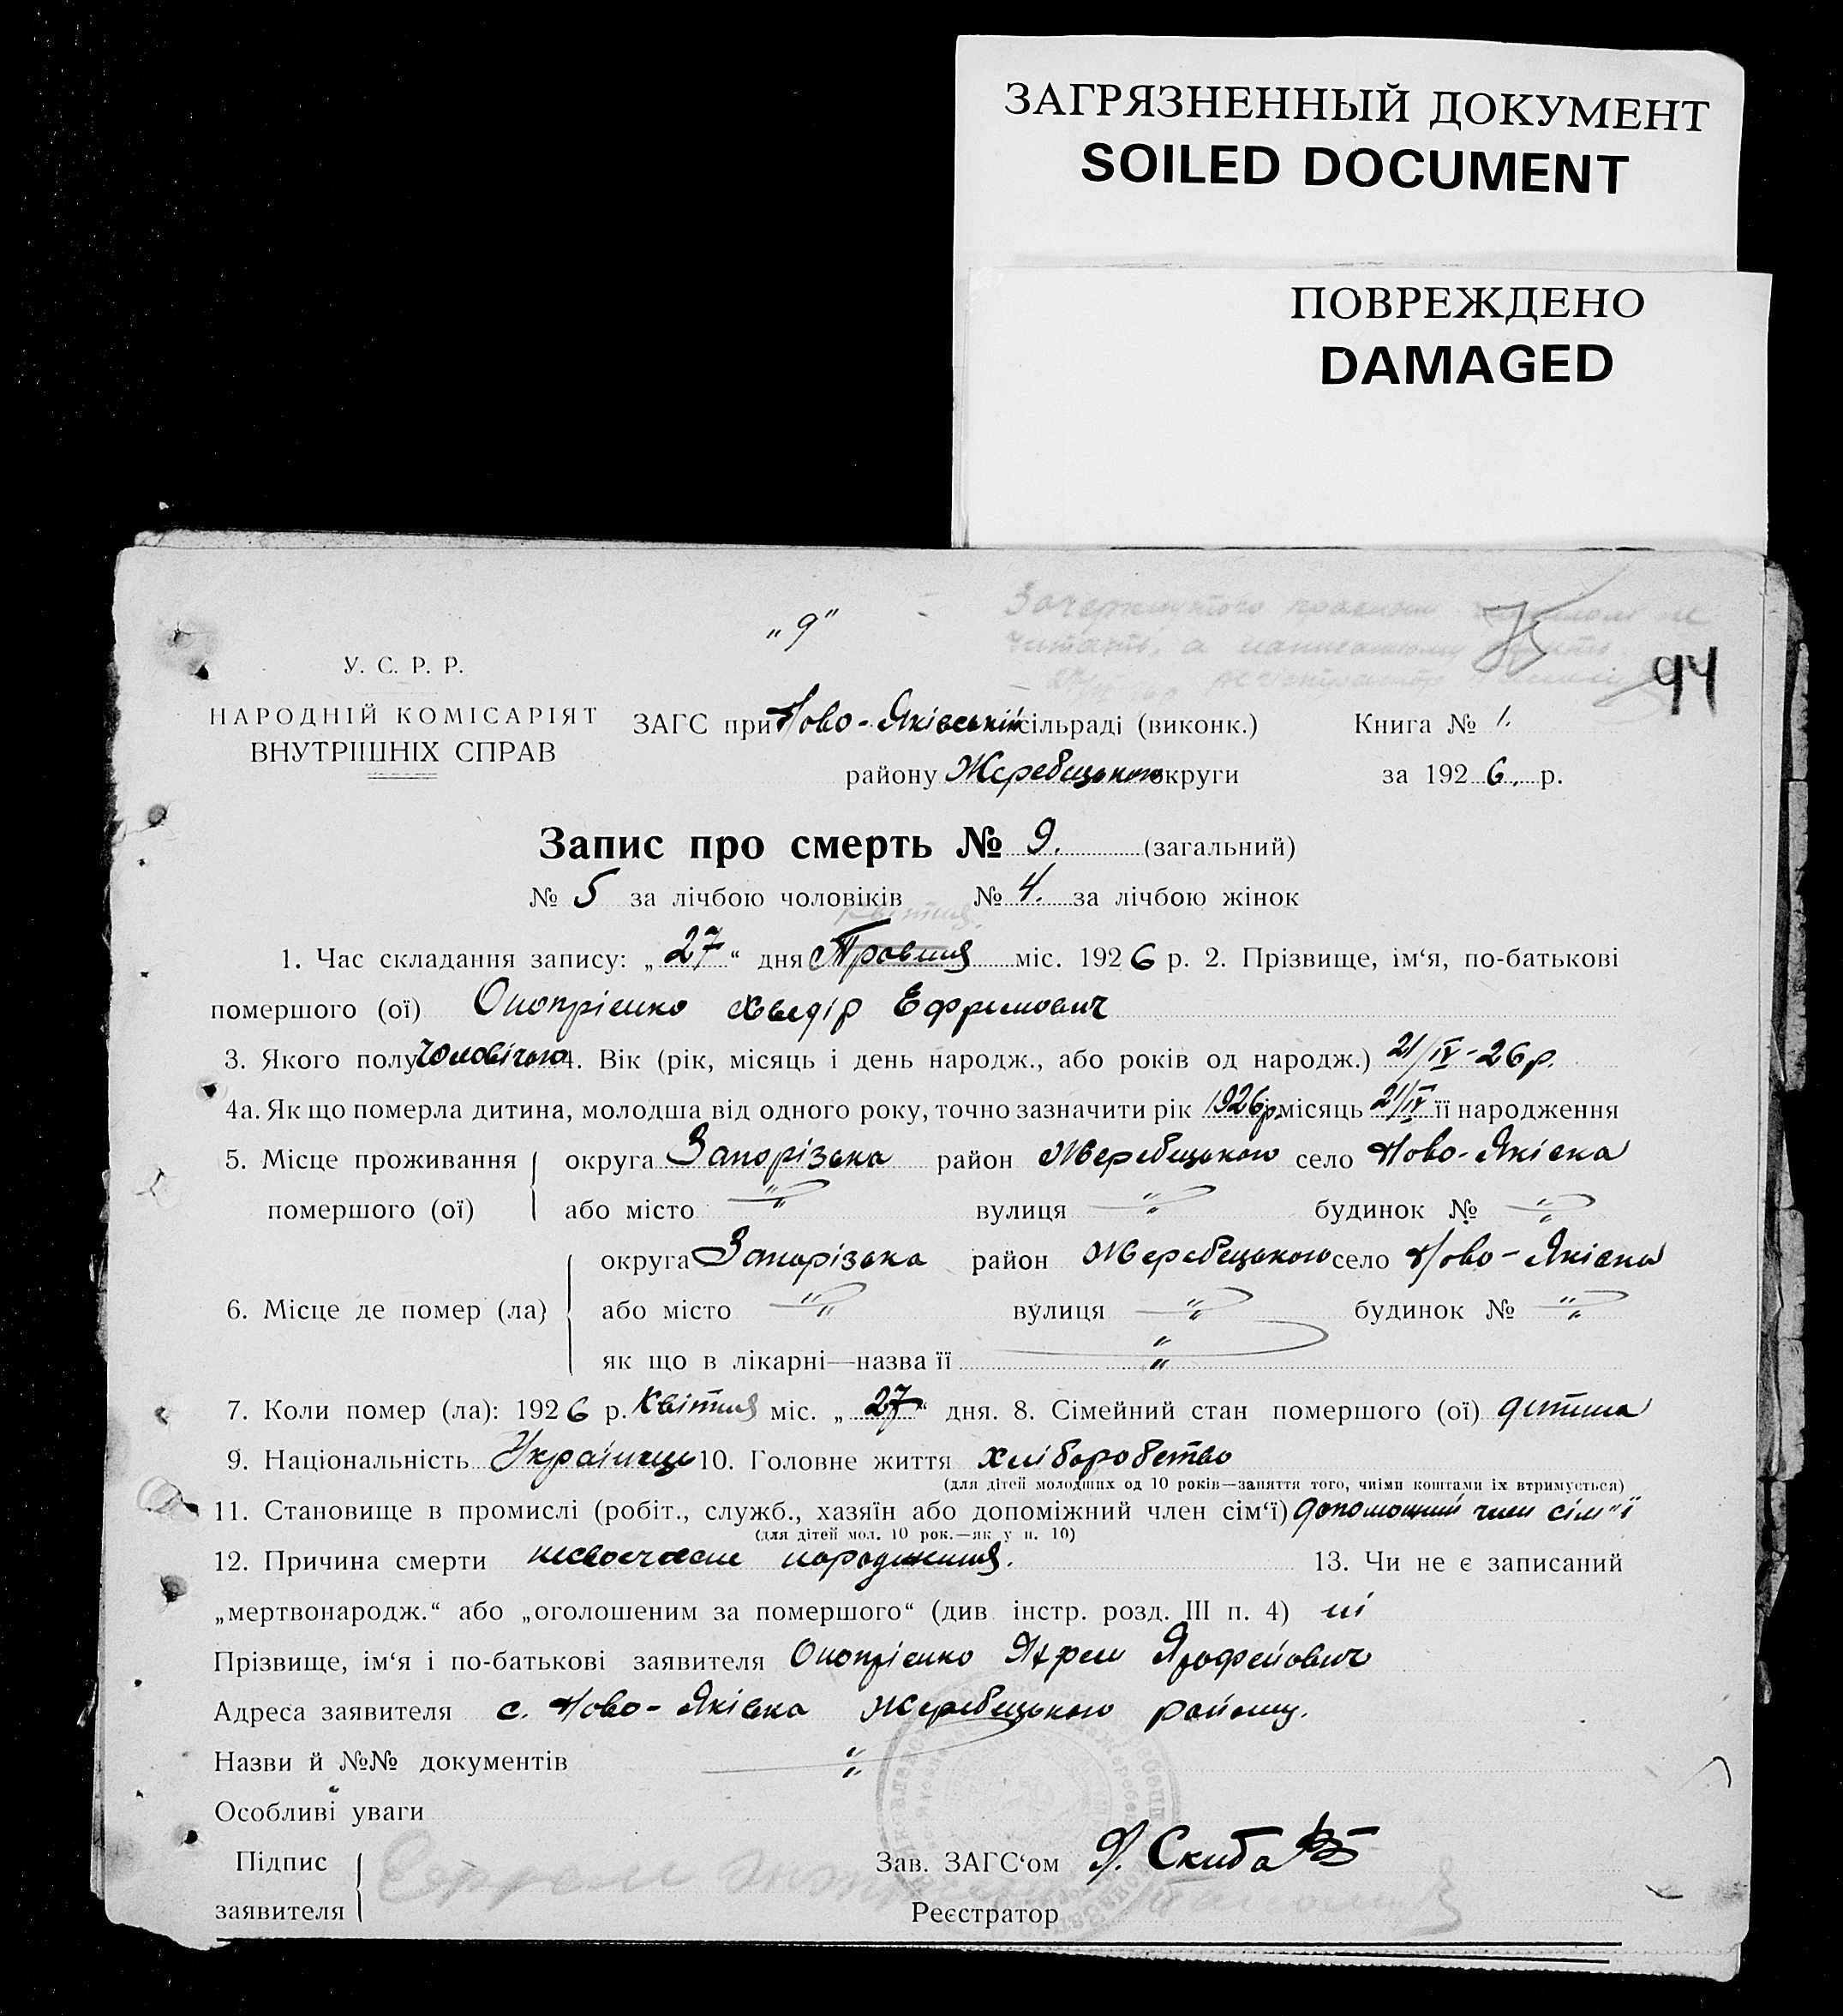 ЗАГРЯЗНЕННЫЙ ДОКУМЕНТ
SOILED DOCUMENT
ПОВРЕЖДЕНО
DAMAGED
„9"
94
У. С. Р. Р.
НАРОДНІЙ КОМІСАРІЯТ
ВНУТРІШНІХ СПРАВ
ЗАГС при Ново-Яківській сільраді (виконк.) Книга № 1.
району Жеребецького округи за 1926. р.
Запис про смерть № 9. (загальний)
№ 5 за лічбою чоловіків № 4. за лічбою жінок
квітня.
1. Час складання запису: „27“ дня Травня міс. 1926 р. 2. Прізвище, ім‘я, по-батькові
помершого (ої) Онопрієнко Хведір Ефремович
3. Якого полу Чоловічого 4. Вік (рік, місяць і день народж., або років од народж.) 21/IV-26р.
4а. Як що померла дитина, молодша від одного року, точно зазначити рік 1926р. місяць 21/IV її народження
5. Місце проживання округа Запорізька район Жеребецького село Ново-Яківка
помершого (ої) або місто " вулиця " будинок № "
округа Запорізька район Жеребецького село Ново-Яківка
6. Місце де помер (ла) або місто " вулиця " будинок № "
як що в лікарні—назва її "
7. Коли помер (ла): 1926 р. Квітня міс. „27“ дня. 8. Сімейний стан помершого (ої) дитина
9. Національність Українець 10. Головне життя хліборобство
(для дітей молодших од 10 років—заняття того, чиїми коштами їх втримується)
11. Становище в промислі (робіт., служб., хазяїн або допоміжний член сім‘ї) допомощний член сім"ї
(для дітей мол. 10 рок.—як у п. 10)
12. Причина смерти несвоєчасне народження. 13. Чи не є записаний
„мертвонародж.“ або „оголошеним за помершого“ (див. інстр. розд. III п. 4) ні
Прізвище, ім‘я і по-батькові заявителя Онопрієнко
Адреса заявителя с. Ново-Яківка Жеребецького району.
Назви й №№ документів "
Особливі уваги
Підпис Зав. ЗАГС‘ом Скиба
заявителя Реєстратор